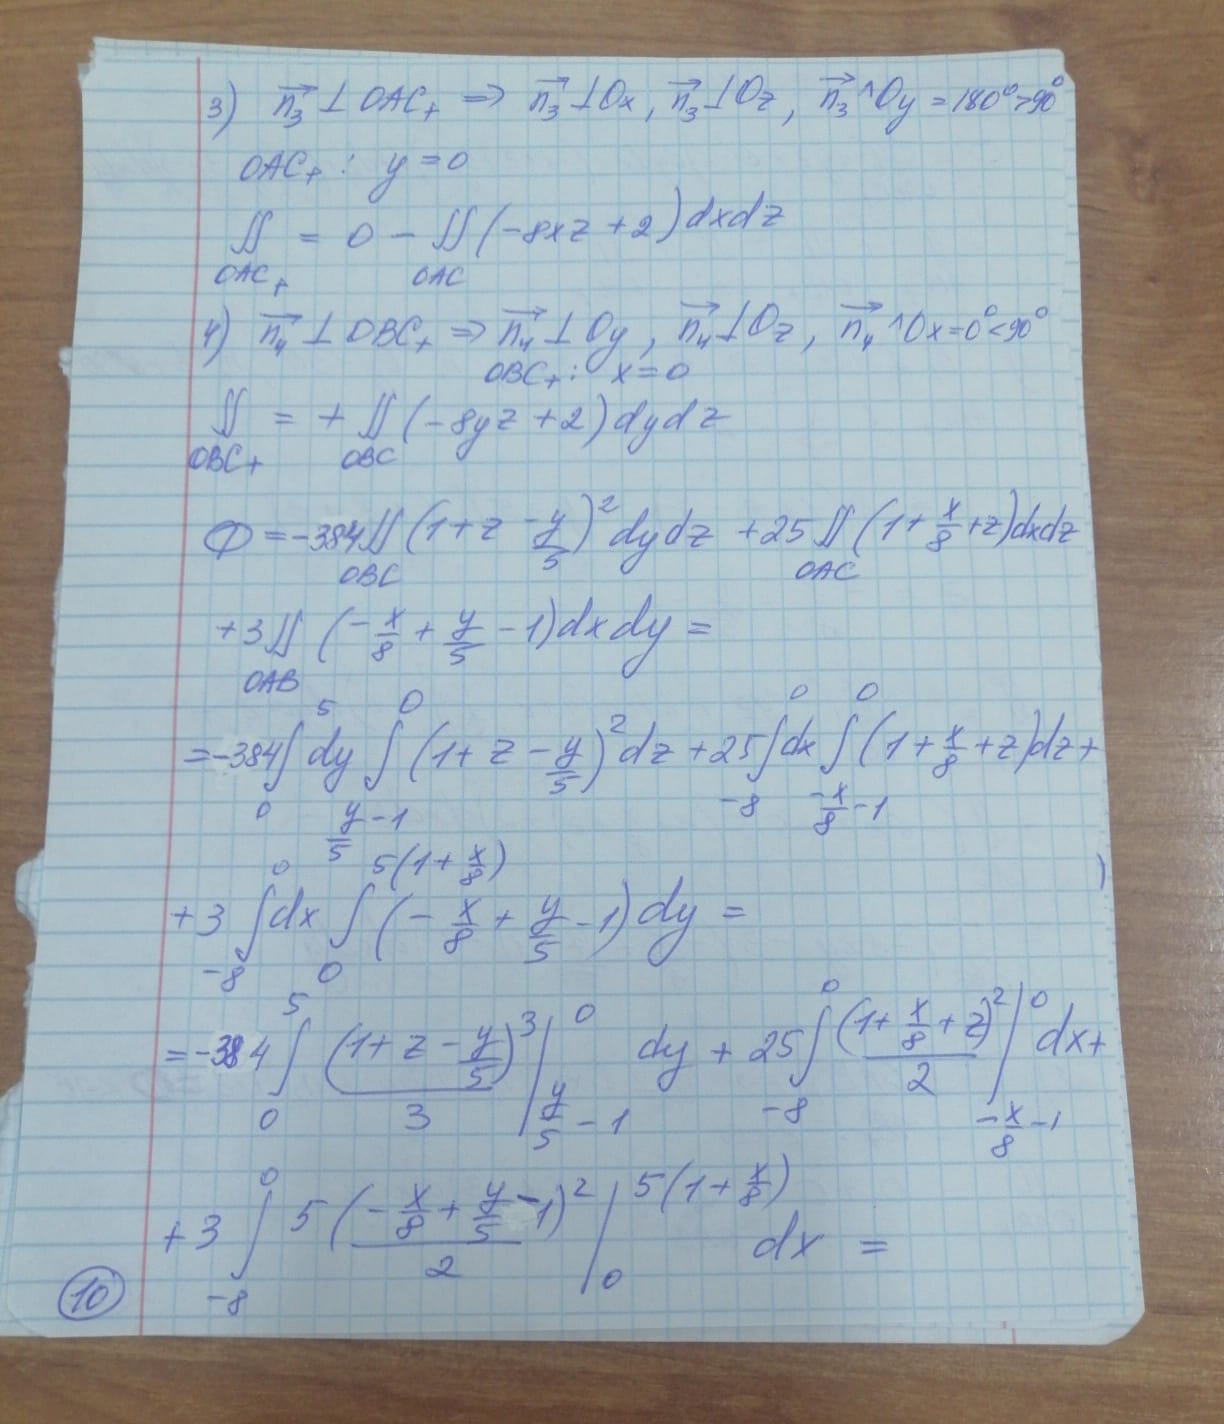 3) n₃⃗ ⊥ OAC₊ ⇒ n₃⃗ ⊥ Ox, n₃⃗ ⊥ Oz, n₃⃗ ^ Oy = 180° > 90°
OAC₊: y = 0
∬_{OAC₊} = 0 − ∬_{OAC} (−8xz + 2) dxdz
4) n₄⃗ ⊥ OBC₊ ⇒ n₄⃗ ⊥ Oy, n₄⃗ ⊥ Oz, n₄⃗ ^ Ox = 0° < 90°
OBC₊: x = 0
∬_{OBC₊} = + ∬_{OBC} (−8yz + 2) dydz
Ф = −384 ∬_{OBC} (1 + z − y/5)² dydz + 25 ∬_{OAC} (1 + x/8 + z) dxdz
+ 3 ∬_{OAB} (−x/8 + y/5 − 1) dxdy =
= −384 ∫_{0}^{5} dy ∫_{y/5 − 1}^{0} (1 + z − y/5)² dz + 25 ∫_{−8}^{0} dx ∫_{−x/8 − 1}^{0} (1 + x/8 + z) dz +
+ 3 ∫_{−8}^{0} dx ∫_{0}^{5(1 + x/8)} (−x/8 + y/5 − 1) dy =
= −384 ∫_{0}^{5} (1 + z − y/5)³/3 |_{y/5 − 1}^{0} dy + 25 ∫_{−8}^{0} (1 + x/8 + z)²/2 |_{−x/8 − 1}^{0} dx +
+ 3 ∫_{−8}^{0} 5(−x/8 + y/5 − 1)²/2 |_{0}^{5(1 + x/8)} dx =
10